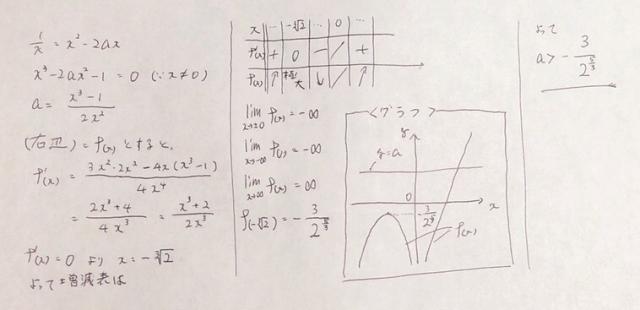 1/x = x² - 2ax
x³ - 2ax² - 1 = 0 (∵ x ≠ 0)
a = (x³ - 1)/(2x²)
(右辺) = f(x) とすると、
f'(x) = (3x²・2x² - 4x(x³ - 1))/(4x⁴)
= (2x³ + 4)/(4x³) = (x³ + 2)/(2x³)
f'(x) = 0 より x = -³√2
よって増減表は
x | … | -³√2 | … | 0 | …
f'(x) | + | 0 | - | ／ | +
f(x) | ↑ | 極大 | ↓ | ／ | ↑
lim x→±0 f(x) = -∞
lim x→-∞ f(x) = -∞
lim x→∞ f(x) = ∞
f(-³√2) = - 3/2^(5/3)
<グラフ>
y
y=a
0
x
-3/2^(5/3)
f(x)
よって
a > - 3/2^(5/3)